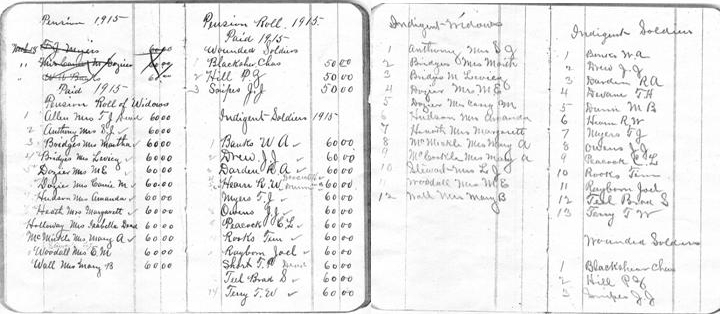 Pension 1915
Nov 18 T J Myers 60.00
" Mrs Camy M Dozier 60.00
" W A Banks 60.00
Paid 1915
Pension Roll of Widows
1 Allen Mrs T J Dead 60 00
2 Anthony Mrs S J 60 00
3 Bridges Mrs Martha 60 00
4 Bridges Mrs Levicy 60 00
Dozier Mrs M E 60 00
Dozier Mrs Camie M 60 00
Hudson Mrs Amanda 60 00
Heath Mrs Margarett 60 00
Holloway Mrs Isabella Dead 60 00
McMickle Mrs Mary A 60 00
Woodall Mrs E M 60 00
Wall Mrs Mary B 60 00
Pension Roll, 1915.
Paid 1915
Wounded Soldiers
1 Blackshear Chas 50.00
2 Hill P G 50.00
3 Snipes J J 50.00
Indigent Soldiers 1915
Banks W A 60.00
Drew J J 60.00
Darden R A 60.00
Hearn R W 60.00
Myers T J 60.00
Owens J J 60.00
Peacock E L 60.00
Rooks Tim 60.00
Rayborn Joel 60.00
Short T P Dead 60.00
Teel Brad S 60.00
14 Terry T. W 60 00
Indigent Widows
1 Anthony Mrs S J
2 Bridges Mrs Marth
3 Bridges M Levicy
4 Dozier Mrs M E
5 Dozier Mrs Camy M
6 Hudson Mrs Amanda
7 Heath Mrs Margarett
8 McMickle Mrs Mary A
9 Mrs Mary A
10 Stewart Mrs L J
11 Woodall Mrs M E
12 Wall Mrs Mary B
Indigent Soldiers
1 Banks W A
2 Drew J J
3 Darden R A
4 Dewane T H
5 Dunn M B
6 Hearn R W
7 Myers T J
8 Owens J J
9 Peacock E L
10 Rooks Tim
11 Rayborn Joel
12 Teel Brad S
13 Terry T W
Wounded Soldiers
1 Blackshear Chas
2 Hill P G
3 Snipes J J